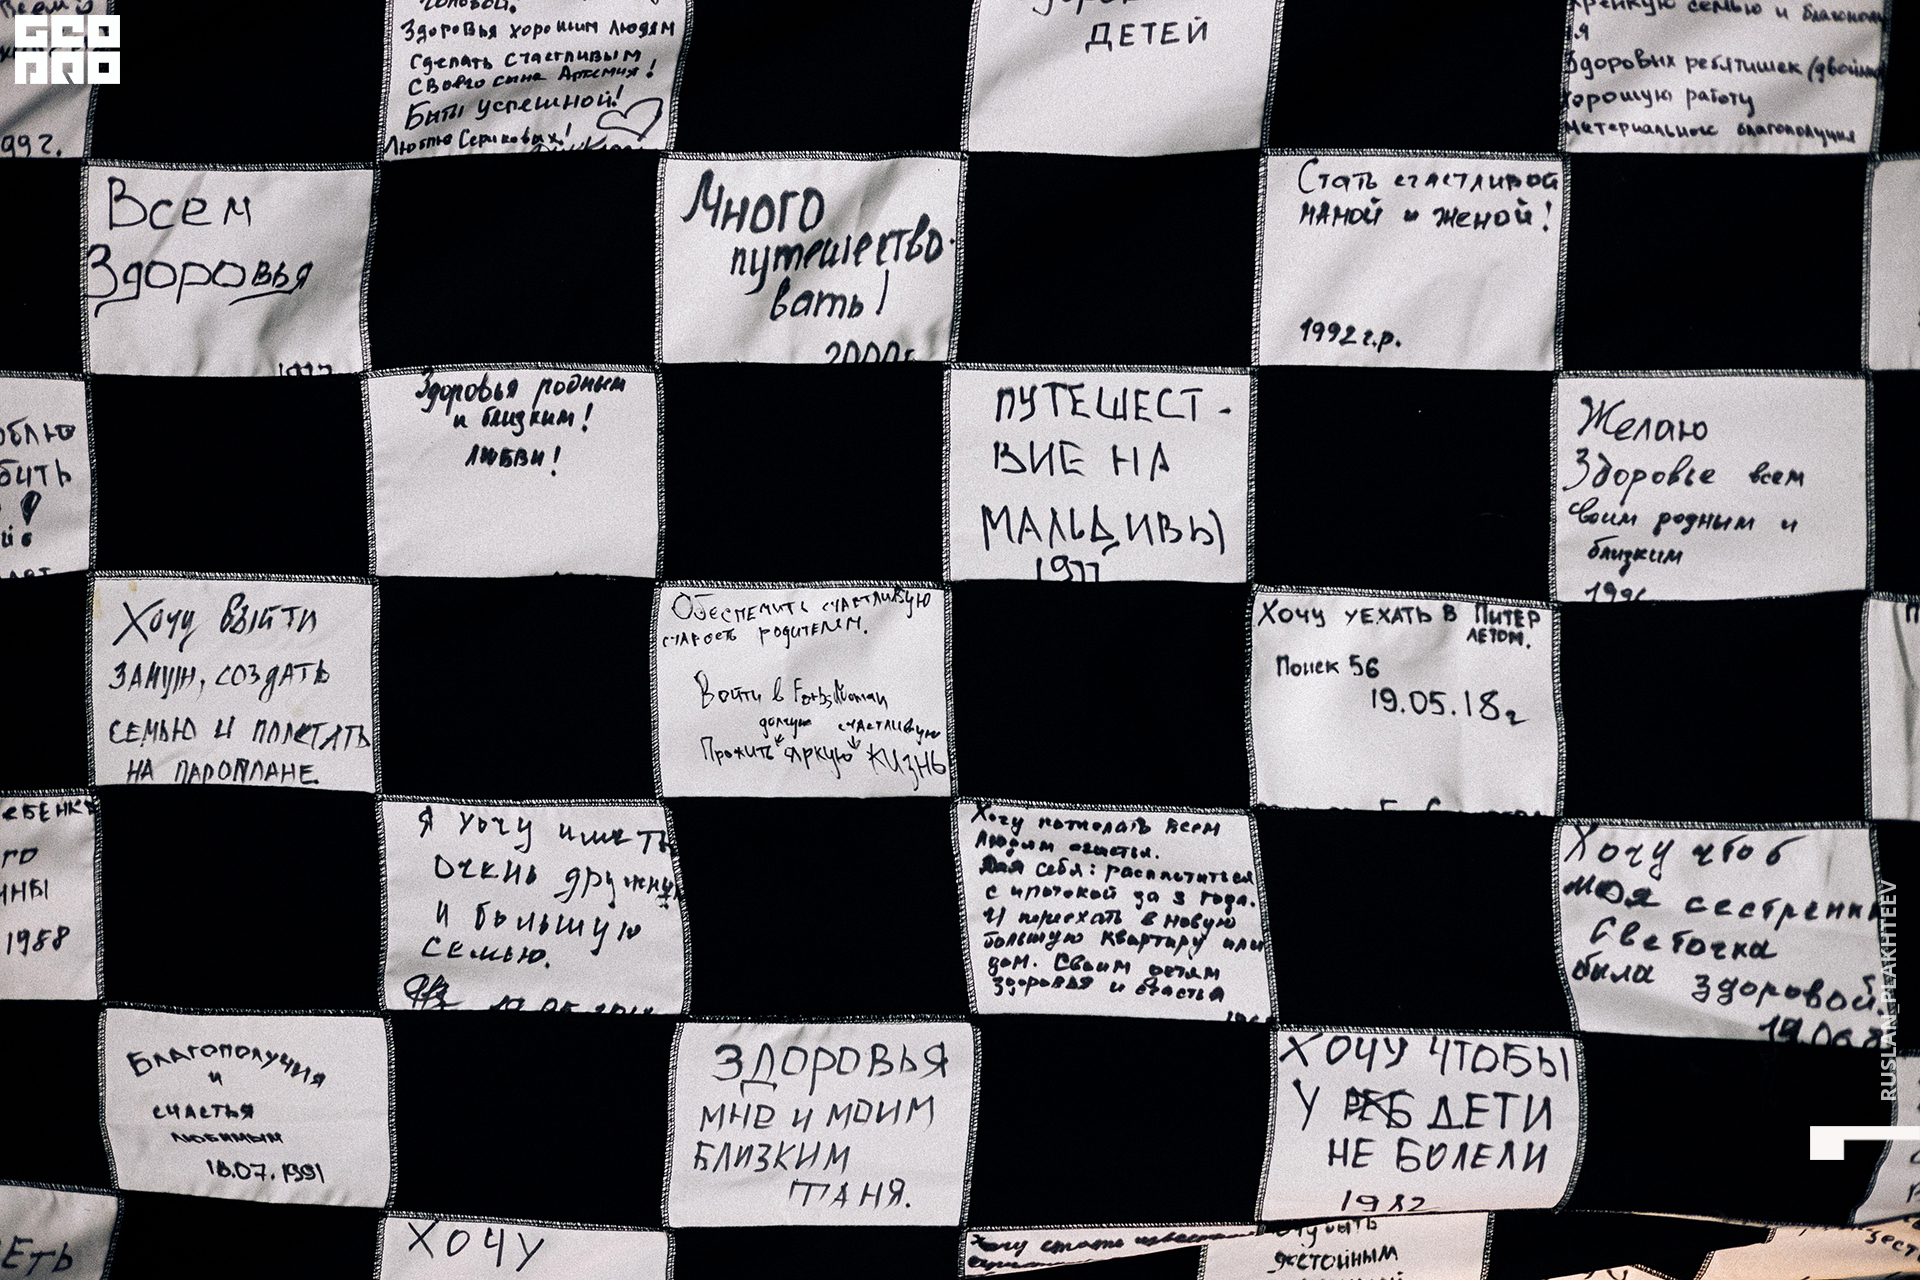 GEO
PRO
головой.
Здоровья хорошим людям
Сделать счастливым
своего сына Артемия!
Быть успешной!
ДЕТЕЙ
крепкую семью и
Здоровых ребятишек
хорошую работу
материальное благополучия
992.
Всем
Здоровья
Много
путешество-
вать!
2000г
Стать счастливой
мамой и женой!
1992 г.р.
Здоровья родным
и близким!
Любви!
ПУТЕШЕСТ-
ВИЕ НА
МАЛЬДИВЫ
1977
Желаю
Здоровье всем
своим родным и
близким
Хочу выйти
замуж, создать
семью и полетать
на параплане.
Обеспечить счастливую
старость родителям.
Войти в Forbs Woman
долгую счастливую
Прожить яркую жизнь
Хочу уехать в Питер
летом.
Поиск 56
19.05.18г
1988
Я хочу иметь
очень дружную
и большую
семью.
Хочу пожелать всем
людям счастья.
Для себя: расплатиться
с ипотекой за 3 года.
И переехать в новую
большую квартиру или
дом. Своим детям
здоровья и счастья
Хочу чтоб
моя сестренка
Светочка
была здоровой.
RUSLAN_PLAKHTEEV
Благополучия
и
счастья
любимым
18.07.1991
ЗДОРОВЬЯ
МНЕ И МОИМ
БЛИЗКИМ
ТАНЯ.
ХОЧУ ЧТОБЫ
У ДЕТИ
НЕ БОЛЕЛИ
1982
ХОЧУ
Хочу стать
достойным